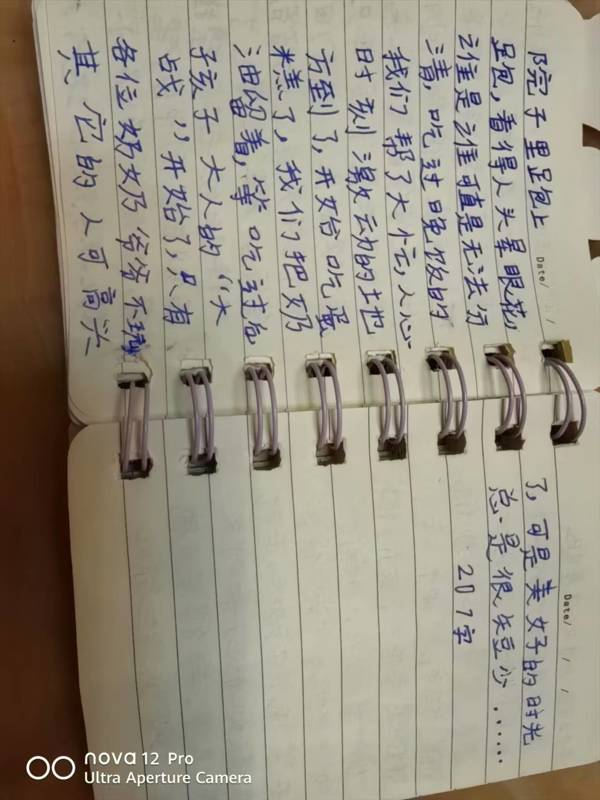 院子里跑上
跑,看得人头晕眼花,
谁是谁可真是无法分
清,吃过晚饭的
我们帮了大忙,人心
时刻激动的地
方到了,开始吃蛋
糕了,我们把奶
油留着,等吃过后
孩子大人的“大
战”开始了,只有
各位奶奶爷爷不玩
其它的人可高兴
Date/
了,可是美好的时光
总是很短少……
207字
Date/
nova 12 Pro
Ultra Aperture Camera